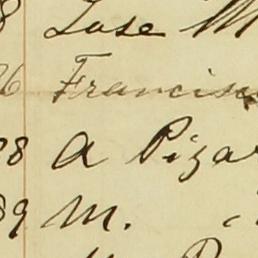 8 Luse M
26 Francisc
28 A Pizar
39 M.